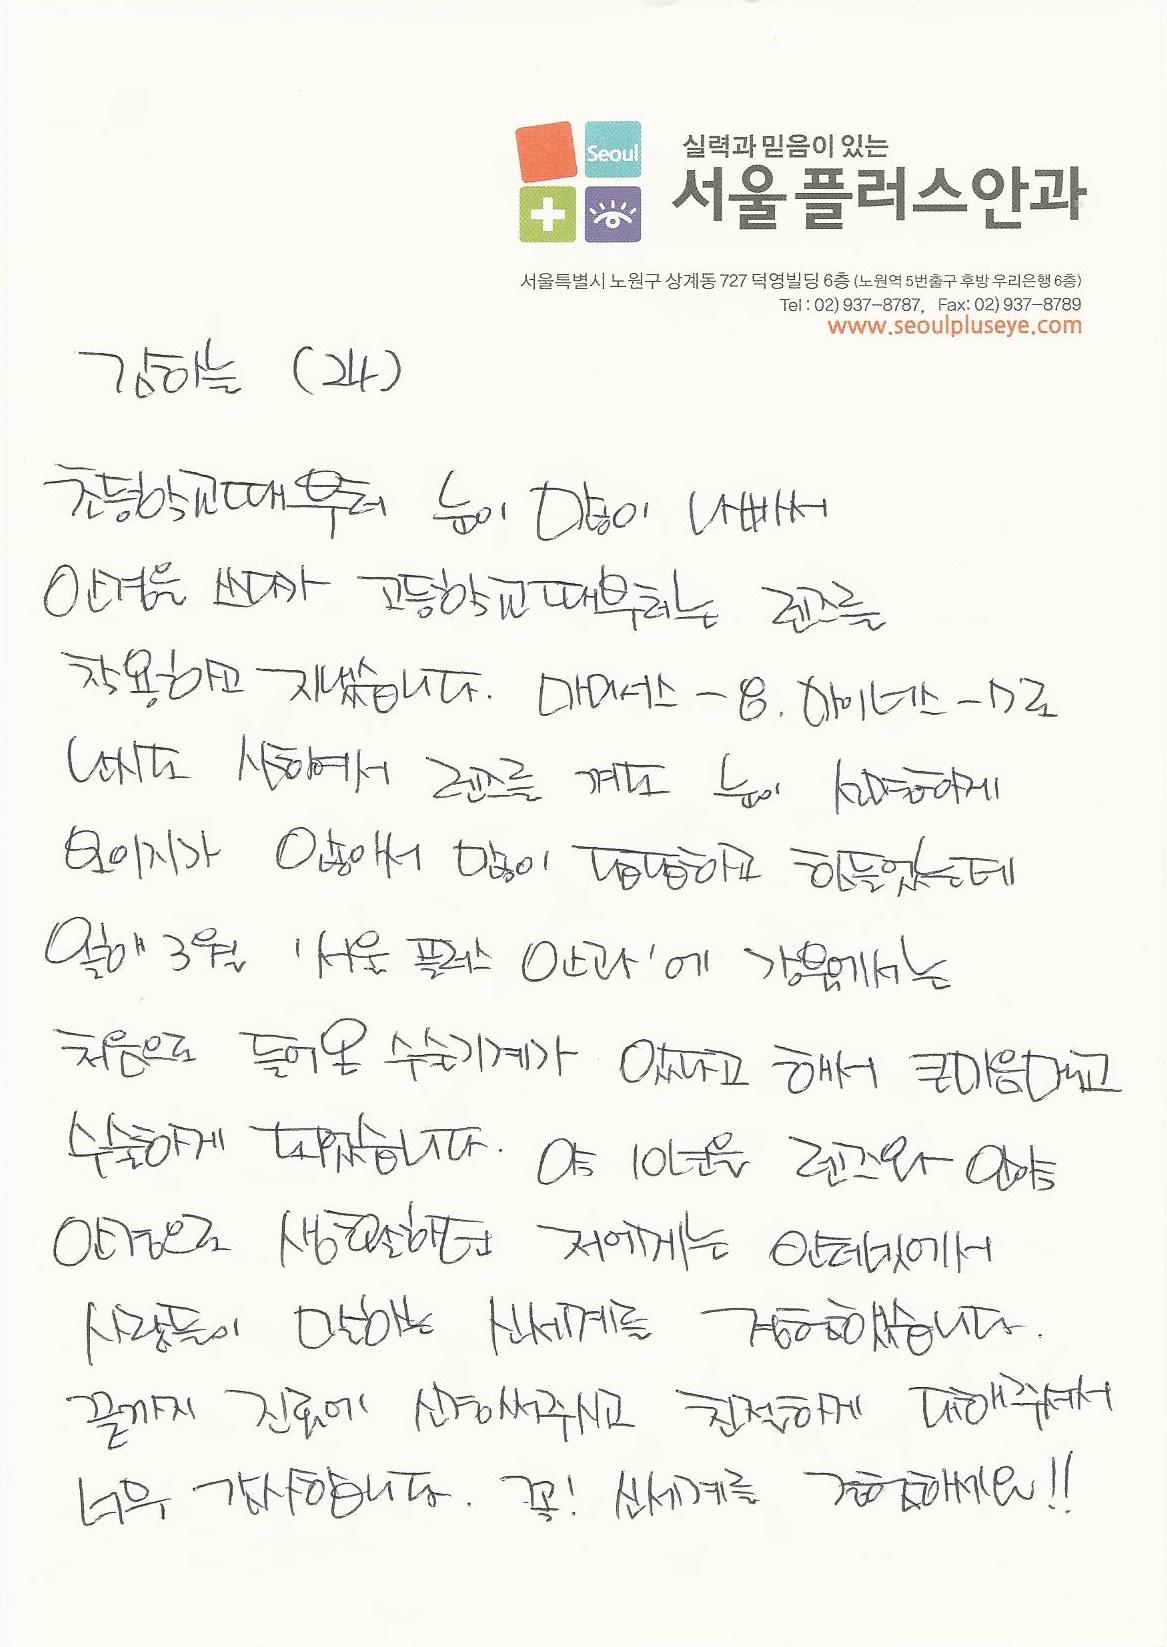 Seoul
실력과 믿음이 있는
서울플러스안과
서울특별시 노원구 상계동 727 덕영빌딩 6층 (노원역 5번출구 후방 우리은행 6층)
Tel : 02) 937-8787, Fax: 02) 937-8789
www.seoulpluseye.com
김하늘 (24)
초등학교때부터 눈이 많이 나빠서
안경을 쓰다가 고등학교때부터는 렌즈를
착용하고 지냈습니다. 마이너스 -8. 마이너스 -7로
난시도 심하여서 렌즈를 껴도 눈이 선명하게
보이지가 않아서 많이 답답하고 힘들었는데
올해 3월 '서울 플러스 안과'에 강북에서는
처음으로 들어온 수술기계가 있다고 해서 큰마음먹고
수술하게 되었습니다. 약 10년을 렌즈와
안경으로 생활하던 저에게는 인터넷에서
사람들이 말하는 신세계를 경험했습니다.
끝까지 진료에 신경써주시고 친절하게 대해주셔서
너무 감사합니다. 꼭! 신세계를 경험하세요!!